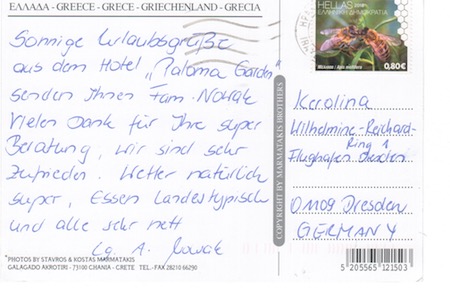 ΕΛΛΑΔΑ - GREECE - GRECE - GRIECHENLAND - GRECIA
Sonnige Urlaubsgrüße
aus dem Hotel „Paloma Garden"
senden Ihnen Fam. Nowak
Vielen Dank für Ihre super
Beratung, wir sind sehr
zufrieden. Wetter natürlich
super, Essen Landestypisch
und alle sehr nett
Lg. A. Nowak
PHOTOS BY STAVROS & KOSTAS MARMATAKIS
GALAGADO AKROTIRI - 73100 CHANIA - CRETE TEL.- FAX 28210 66290
COPYRIGHT BY MARMATAKIS BROTHERS
HELLAS 2018
ΕΛΛΗΝΙΚΗ ΔΗΜΟΚΡΑΤΙΑ
0,80€
Karolina
Wilhelmine-Reichard-
Ring 1
Flughafen Dresden
01109 Dresden
GERMANY
5 205565 121503